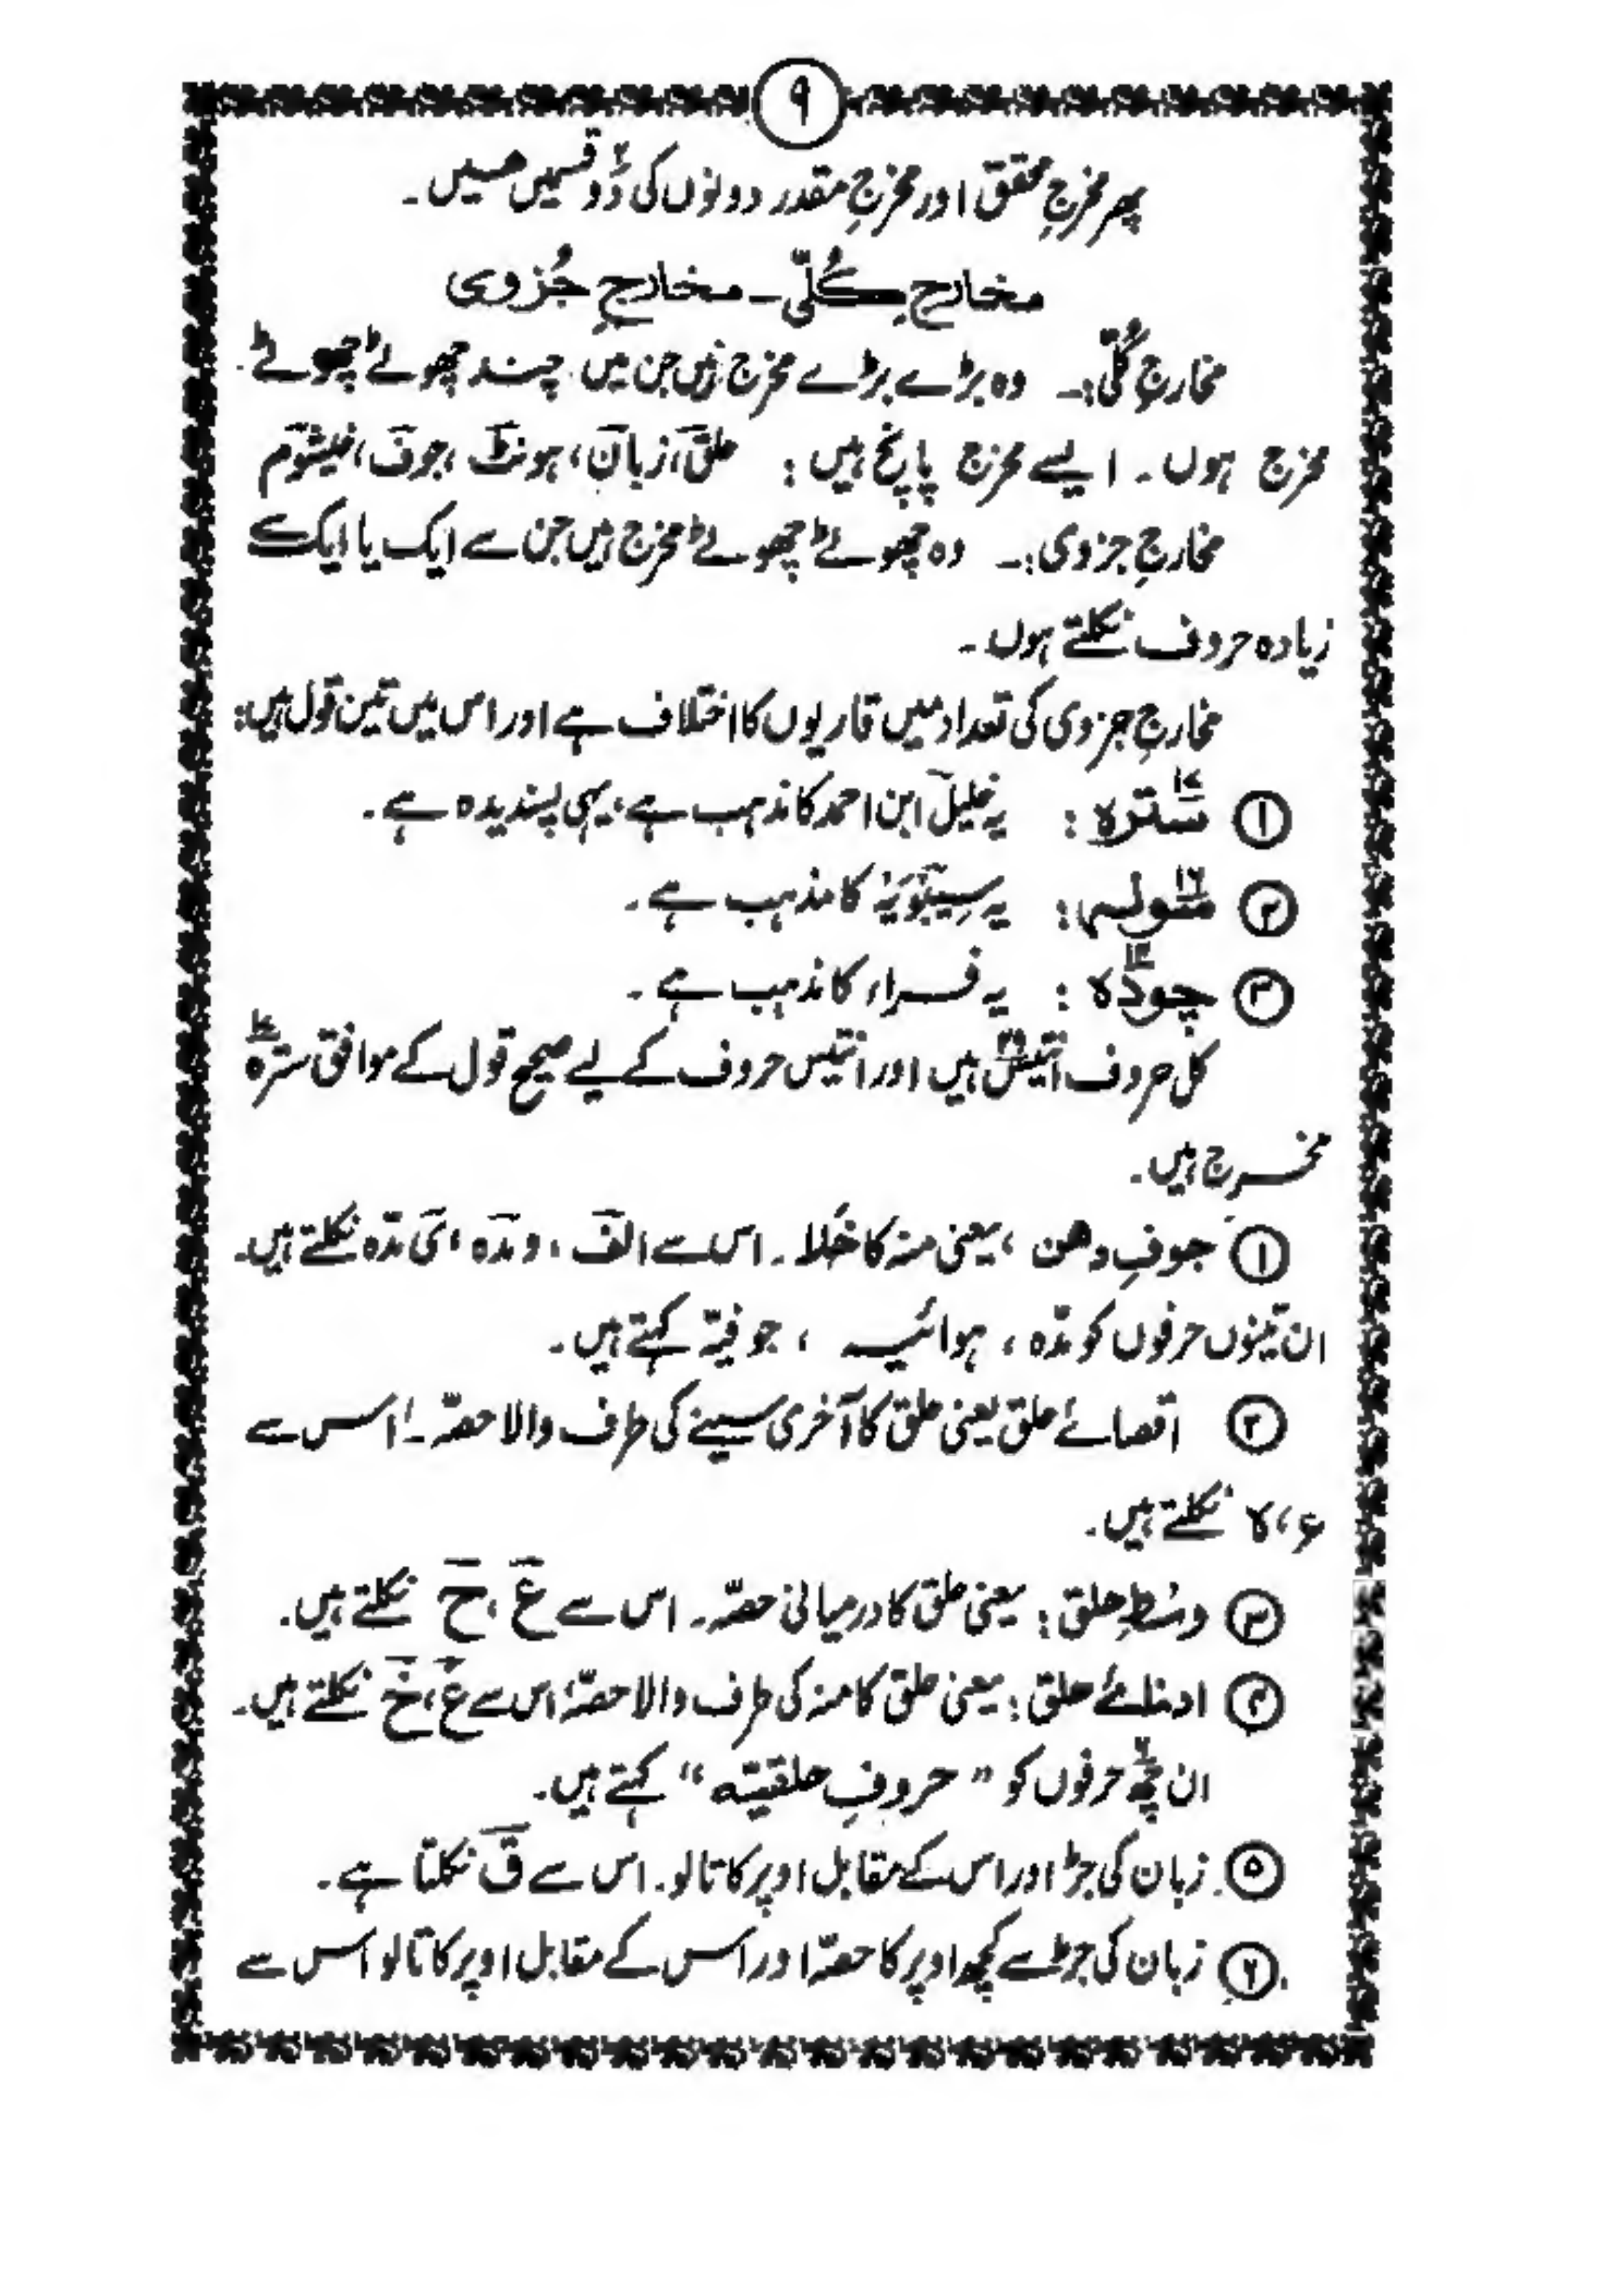 ۹
پھر مخرجِ محقق اور مخرجِ مقدر دونوں کی دو۲ قسمیں ھیں۔
مخارجِ کُلّی ـ مخارجِ جُزوی
مخارجِ کُلّی:۔ وہ بڑے بڑے مخرج ہیں جن میں چند چھوٹے چھوٹے
مخرج ہوں۔ ایسے مخرج پانچ ہیں: حلق، زبان، ہونٹ، جوف، خیشوم
مخارجِ جزوی:۔ وہ چھوٹے چھوٹے مخرج ہیں جن سے ایک یا ایک
زیادہ حروف نکلتے ہوں۔
مخارجِ جزوی کی تعداد میں قاریوں کا اختلاف ہے اور اس میں تین قول ہیں:
① سترہ۱۷: یہ خلیل ابن احمد کا مذہب ہے، یہی پسندیدہ ہے۔
② سولہ۱۶: یہ سِیبَوَیہ کا مذہب ہے۔
③ چودہ۱۴: یہ فراء کا مذہب ہے۔
کل حروف انتیس۲۹ ہیں اور انتیس حروف کے لیے صحیح قول کے موافق سترہ۱۷
مخرج ہیں۔
① جوفِ دھن، یعنی منہ کا خَلا۔ اس سے الف، و مدّہ، ی مدّہ نکلتے ہیں۔
ان تینوں حرفوں کو مدّہ، ہوائیہ، جوفیّہ کہتے ہیں۔
② اقصائے حلق یعنی حلق کا آخری سینے کی طرف والا حصّہ۔ اس سے
ء، ہ نکلتے ہیں۔
③ وسْطِ حلق: یعنی حلق کا درمیانی حصّہ۔ اس سے ع، ح نکلتے ہیں۔
④ ادنائے حلق: یعنی حلق کا منہ کی طرف والا حصّہ، اس سے غ، خ نکلتے ہیں۔
ان چھ۶ حرفوں کو "حروفِ حلقیتہ" کہتے ہیں۔
⑤ زبان کی جڑ اور اس کے مقابل اوپر کا تالو۔ اس سے ق نکلتا ہے۔
⑥ زبان کی جڑ سے کچھ اوپر کا حصّہ اور اس کے مقابل اوپر کا تالو اس سے